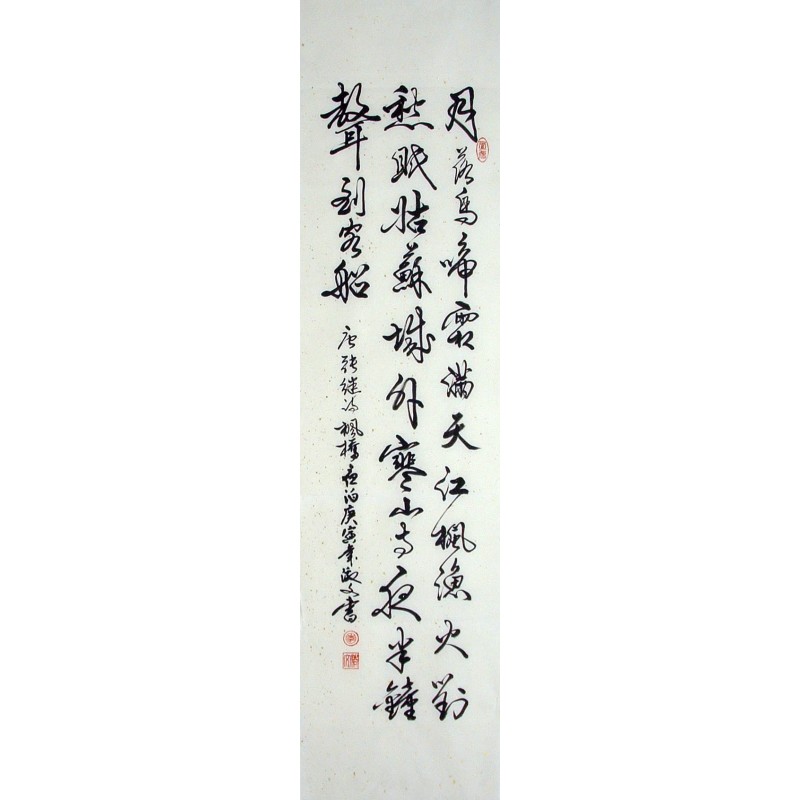 月落烏啼霜滿天江楓漁火對
愁眠姑蘇城外寒山寺夜半鐘
聲到客船
唐張繼詩楓橋夜泊庚寅年淑文書